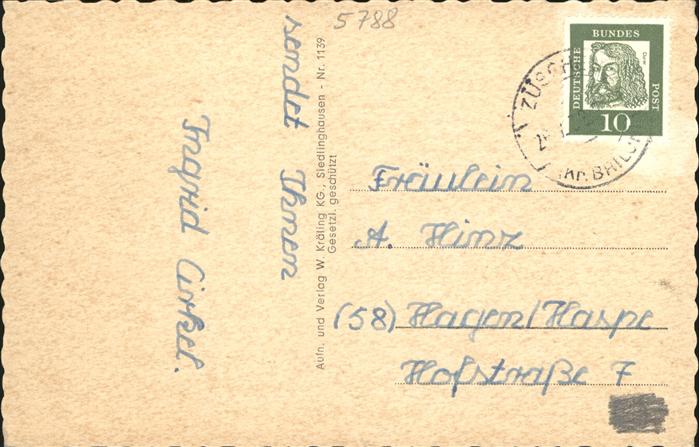 5788
sendet Ihnen
Ingrid Cirkel.
Aufn. und Verlag W. Kräling KG., Siedlinghausen - Nr. 1139
Gesetzl. geschützt
DEUTSCHE
BUNDES
POST
10
Kr. BRILON
Fräulein
A. Hinz
(58) Hagen/Haspe
Hofstraße 7